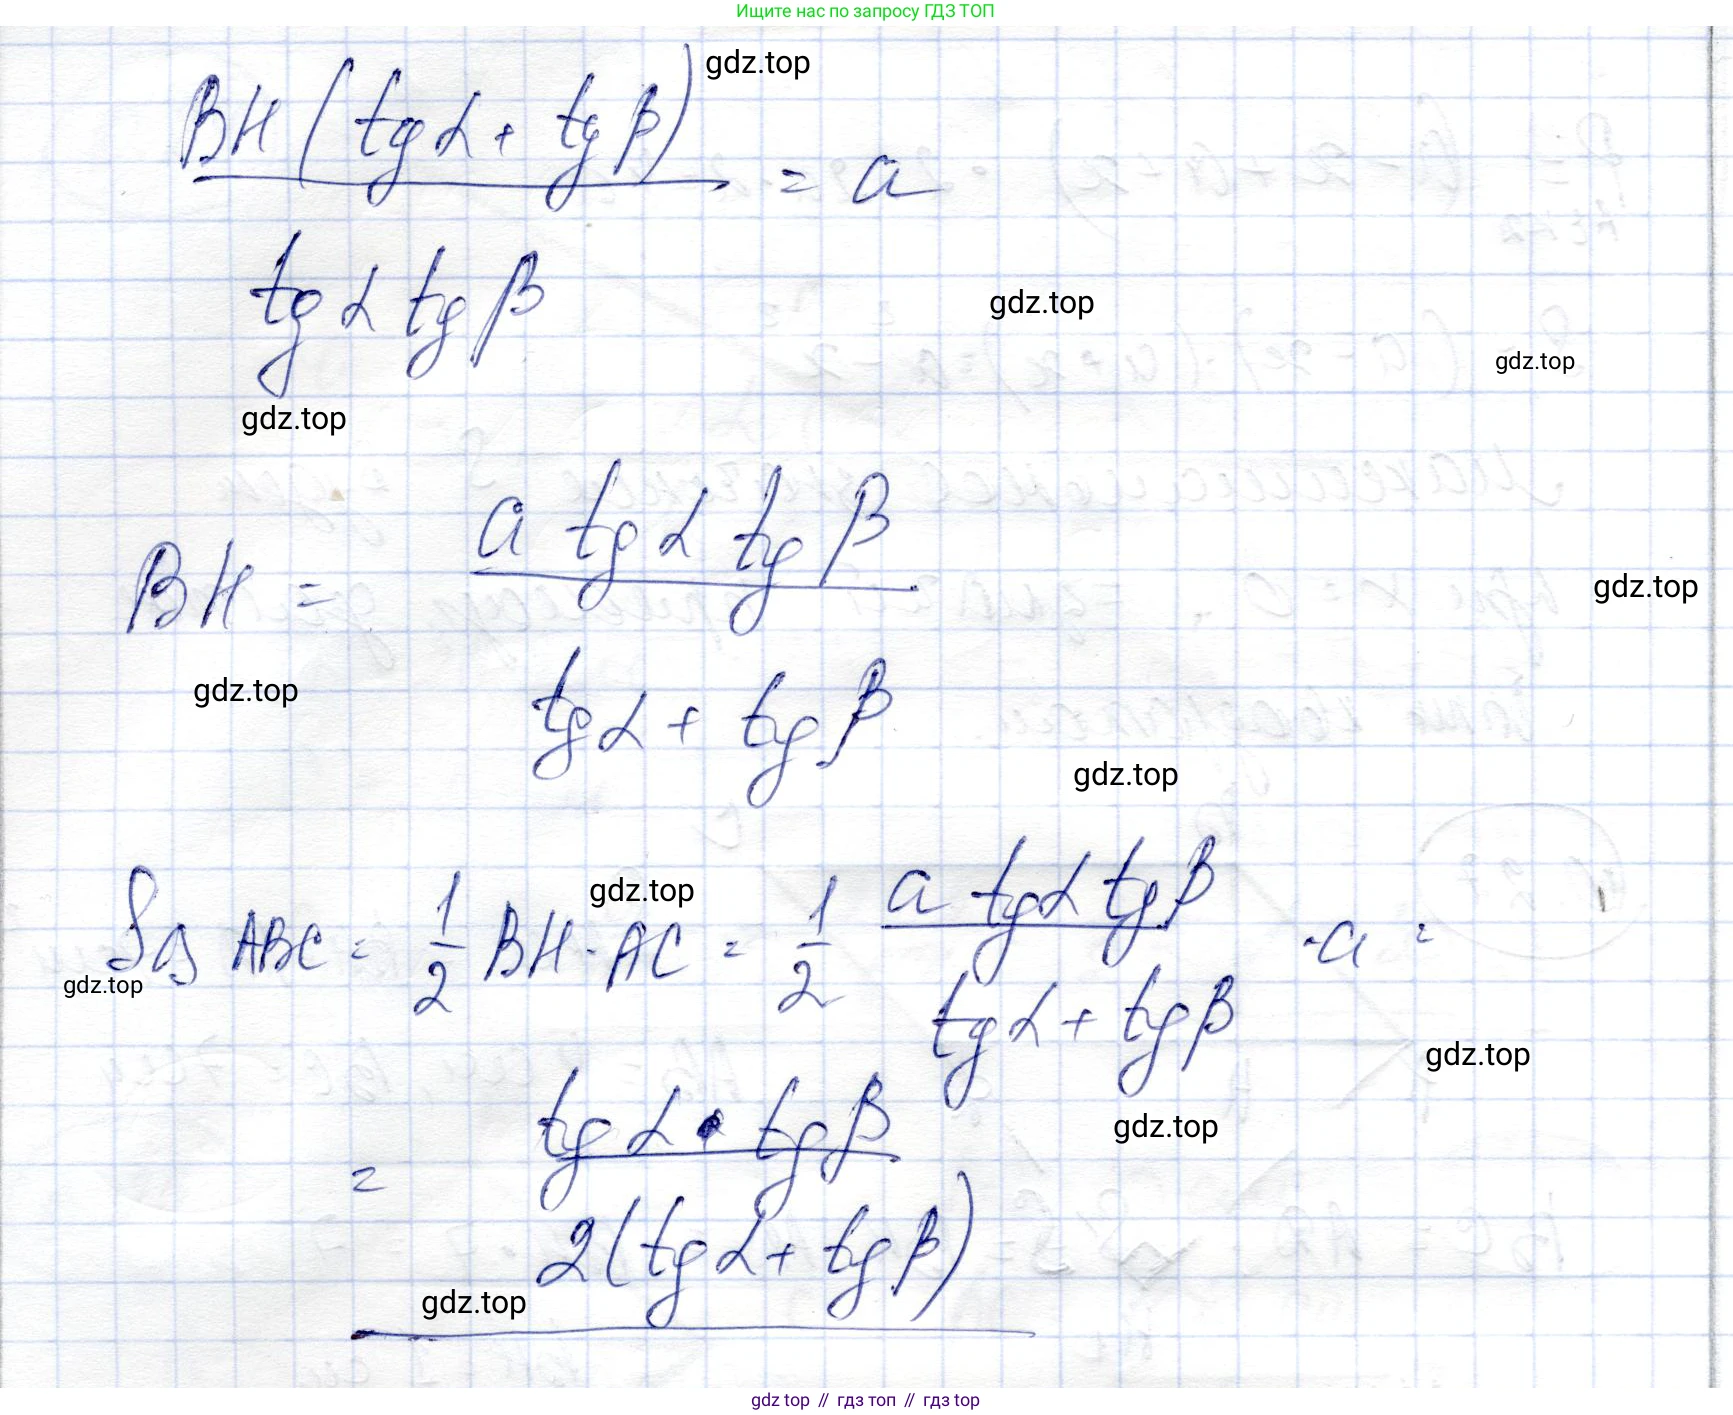 Ищите нас по запросу ГДЗ ТОП
gdz.top
BH(tgα + tgβ)
= a
tgα tgβ
gdz.top
gdz.top
gdz.top
a tgα tgβ
BH =
gdz.top
tgα + tgβ
gdz.top
gdz.top
gdz.top
S△ ABC = 1/2 BH · AC = 1/2 a tgα tgβ / tgα + tgβ · a =
gdz.top
gdz.top
gdz.top
= tgα · tgβ / 2(tgα + tgβ)
gdz.top
gdz.top // гдз топ // гдз top